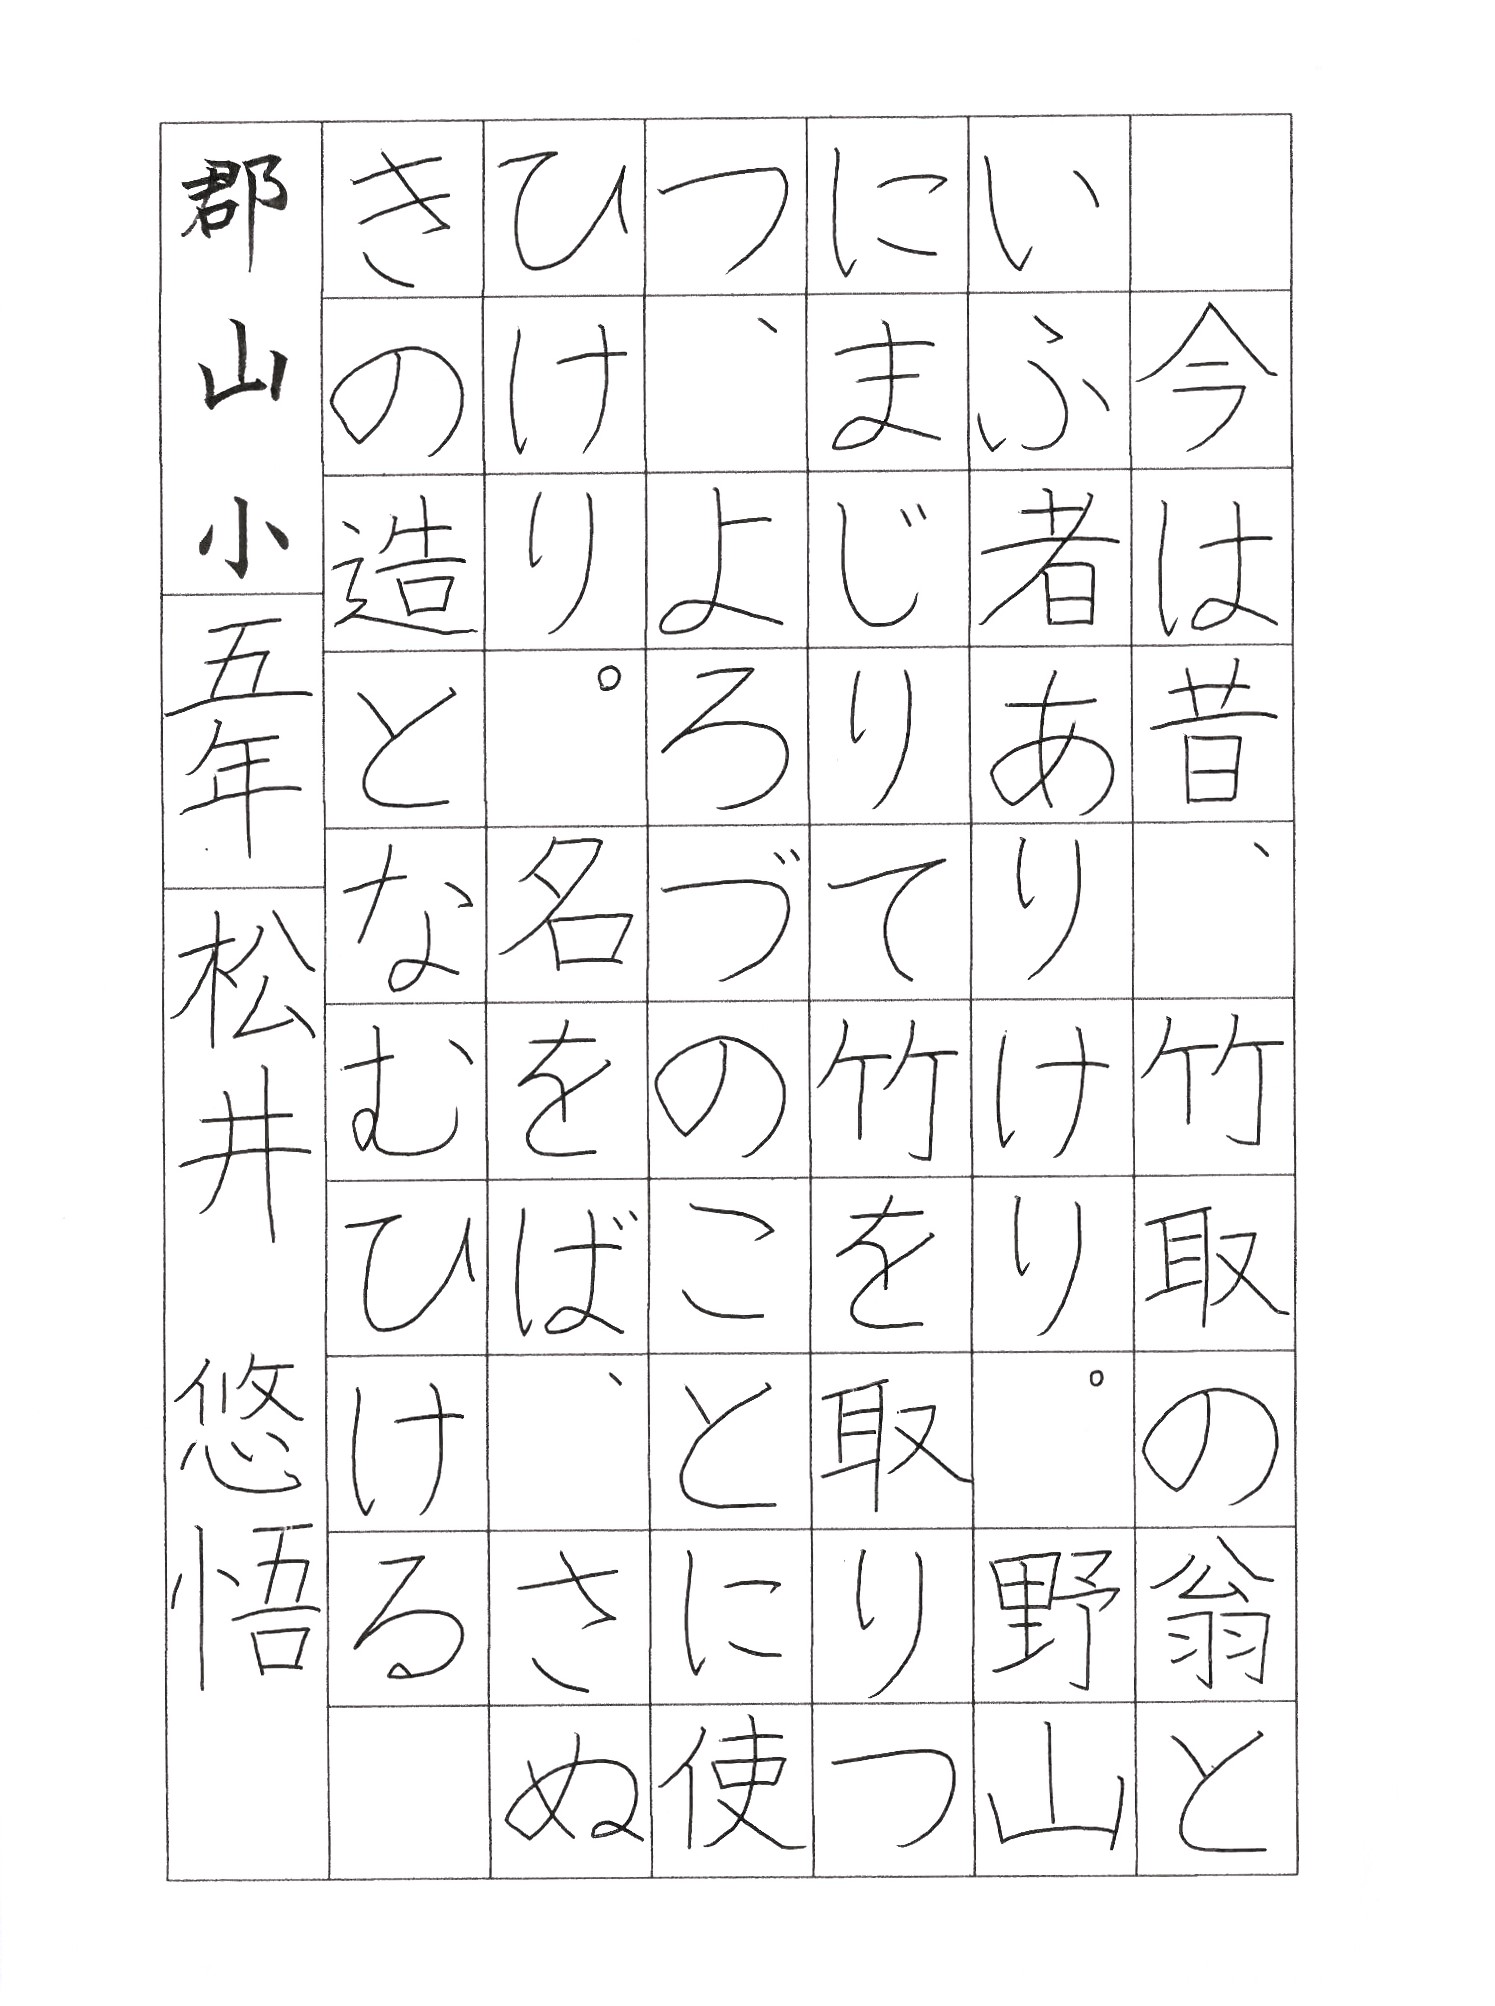 今は昔、竹取の翁と
いふ者ありけり。野山
にまじりて竹を取りつ
つ、よろづのことに使
ひけり。名をば、さぬ
きの造となむひける
郡山小 五年 松井 悠悟